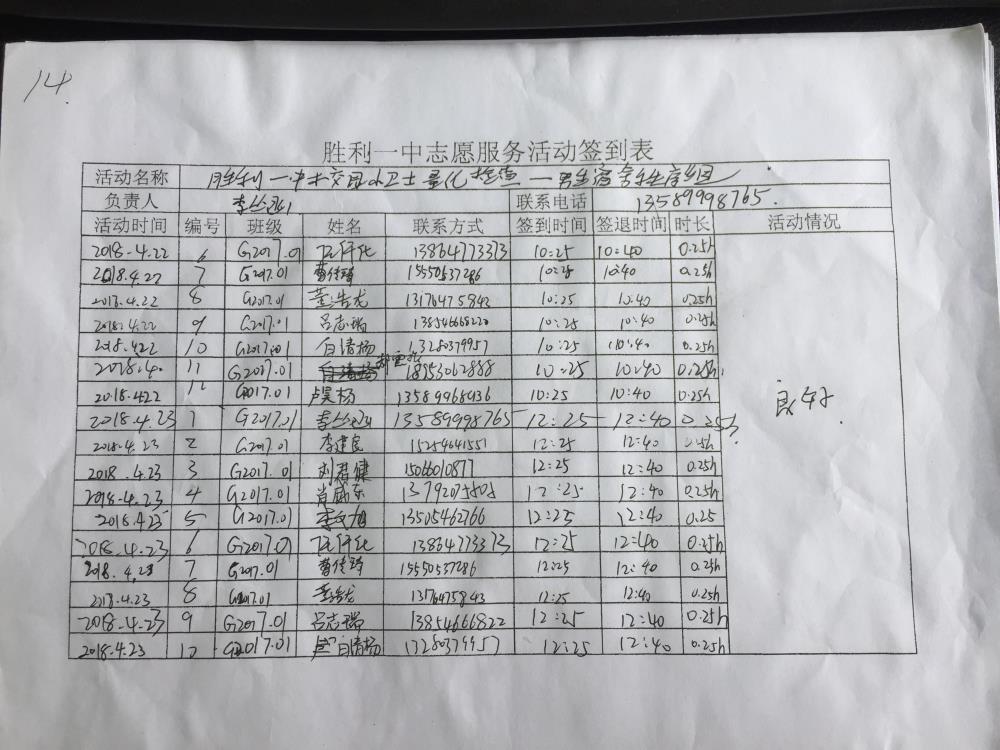 14
胜利一中志愿服务活动签到表
活动名称 胜利一中 校园小卫士量化检查 — 男生宿舍 组
负责人 李 联系电话 13589998765.
活动时间 编号 班级 姓名 联系方式 签到时间 签退时间 时长 活动情况
2018.4.22 6 G2017.01 13864773373 10:25 10:40 0.25h
2018.4.22 7 G2017.01 曹 15550537286 10:25 10:40 0.25h
2018.4.22 8 G2017.01 董浩龙 13176475843 10:25 10:40 0.25h
2018.4.22 9 G2017.01 吕志瑞 13854666822 10:25 10:40 0.25h
2018.422 10 G2017.01 白清扬 13280379957 10:25 10:40 0.25h
11 G2017.01 10:25 10:40 0.25h
2018.422 12 G2017.01 卢昊杨 13589966436 10:25 10:40 0.25h
良好
2018.4.23 1 G2017.01 李 13589998765 12:25 12:40 0.25h
2018.4.23 2 G2017.01 李建良 15254641551 12:25 12:40 0.25h
2018.4.23 3 G2017.01 刘君健 15066010877 12:25 12:40 0.25h
2018.4.23 4 G2017.01 肖 12:25 12:40 0.25h
2018.4.23 5 G2017.01 李文旭 13505462766 12:25 12:40 0.25
2018.4.23 6 G2017.01 13864773373 12:25 12:40 0.25h
2018.4.23 7 G2017.01 曹 15550537286 12:25 12:40 0.25h
2018.4.23 8 G2017.01 董浩龙 13176475843 12:25 12:40 0.25h
2018.4.23 9 G2017.01 吕志瑞 13854666822 12:25 12:40 0.25h
2018.4.23 10 G2017.01 白清扬 13280379957 12:25 12:40 0.25h